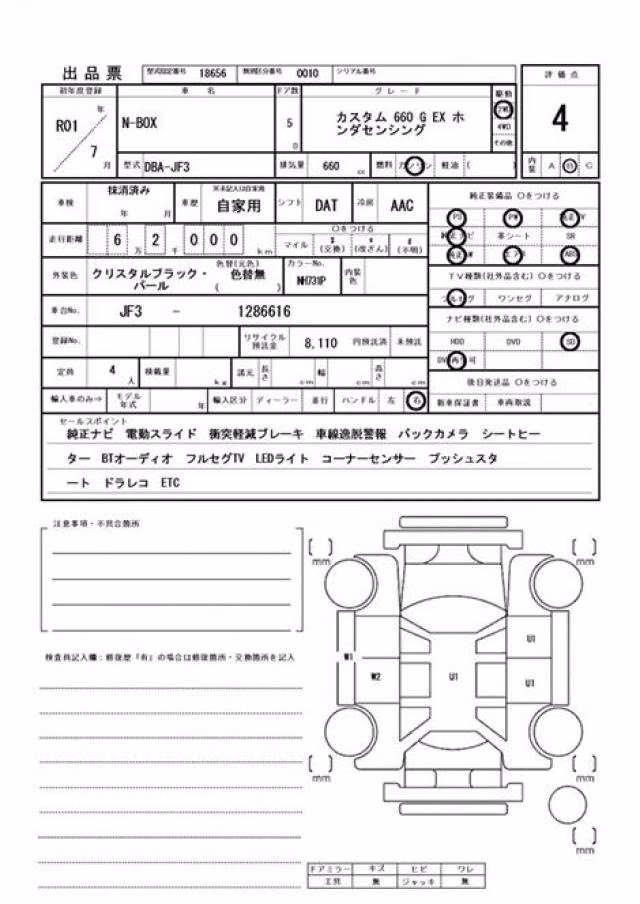 出品票 型式指定番号 18656 類別区分番号 0010 シリアル番号
初年度登録 車名 ドア数 グレード 駆動 評価点
R01 年 7 月 N-BOX 5 D カスタム 660 G EX ホンダセンシング 2WD 4WD その他 4
型式 DBA-JF3 排気量 660 cc 燃料 ガソリン 軽油 ( ) 内装 A B C
車検 抹消済み 年 月 車歴 ※未記入は自家用 自家用 シフト DAT 冷房 AAC
純正装備品 ○をつける
PS PW 純正TV
走行距離 6 万 2 千 0 0 0 km ○をつける マイル $ (交換) * (改ざん) # (不明)
純正ナビ 革シート SR
純正AW エアB ABS
外装色 クリスタルブラック・パール 色替(元色) 色替無 ( ) カラーNo. NH731P 内装色
TV種類(社外品含む) ○をつける
フルセグ ワンセグ アナログ
車台No. JF3 - 1286616
ナビ種類(社外品含む) ○をつける
登録No. リサイクル預託金 8,110 円預託済 未預託
HDD DVD SD
DVD再生可
定員 4 人 積載量 kg 諸元 長さ cm 幅 cm 高さ cm
後日発送品 ○をつける
輸入車のみ⇒ モデル年式 年 輸入区分 ディーラー 並行 ハンドル 左 右
新車保証書 車両取説
セールスポイント
純正ナビ 電動スライド 衝突軽減ブレーキ 車線逸脱警報 バックカメラ シートヒー
ター BTオーディオ フルセグTV LEDライト コーナーセンサー プッシュスタ
ート ドラレコ ETC
注意事項・不具合箇所
検査員記入欄:修復歴「有」の場合は修復箇所・交換箇所を記入
[ ] mm [ ] mm
U1
W1
W2 U1 U1
[ ] mm [ ] mm
[ ] mm
ドアミラー キズ ヒビ ワレ
工具 無 ジャッキ 無